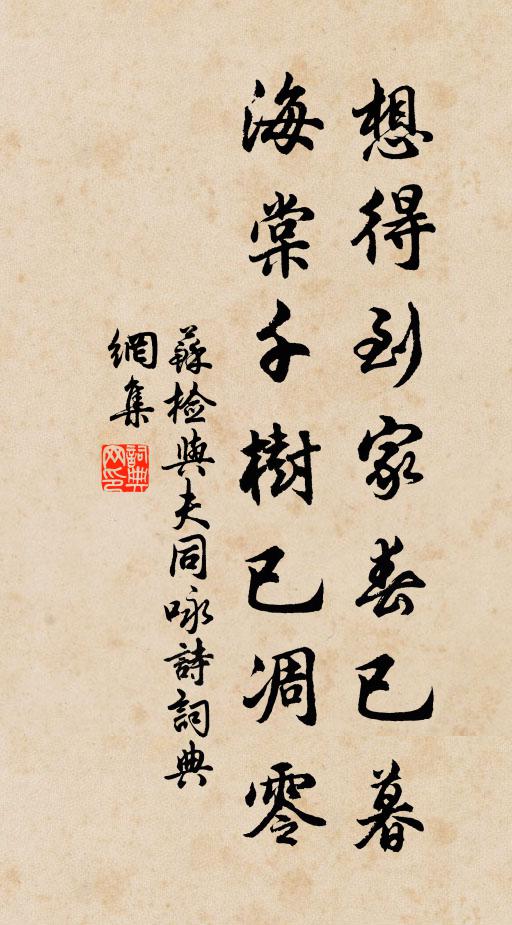 想得到家春已暮
海棠千樹已凋零
蘇檢與夫同咏詩詞典
網集
詞典网印